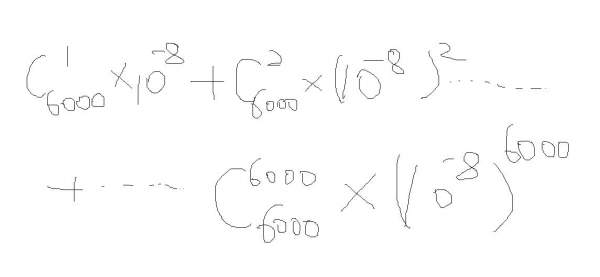 C₆₀₀₀¹ × 10⁻⁸ + C₆₀₀₀² × (10⁻⁸)² ......
+ ...... C₆₀₀₀⁶⁰⁰⁰ × (10⁻⁸)⁶⁰⁰⁰